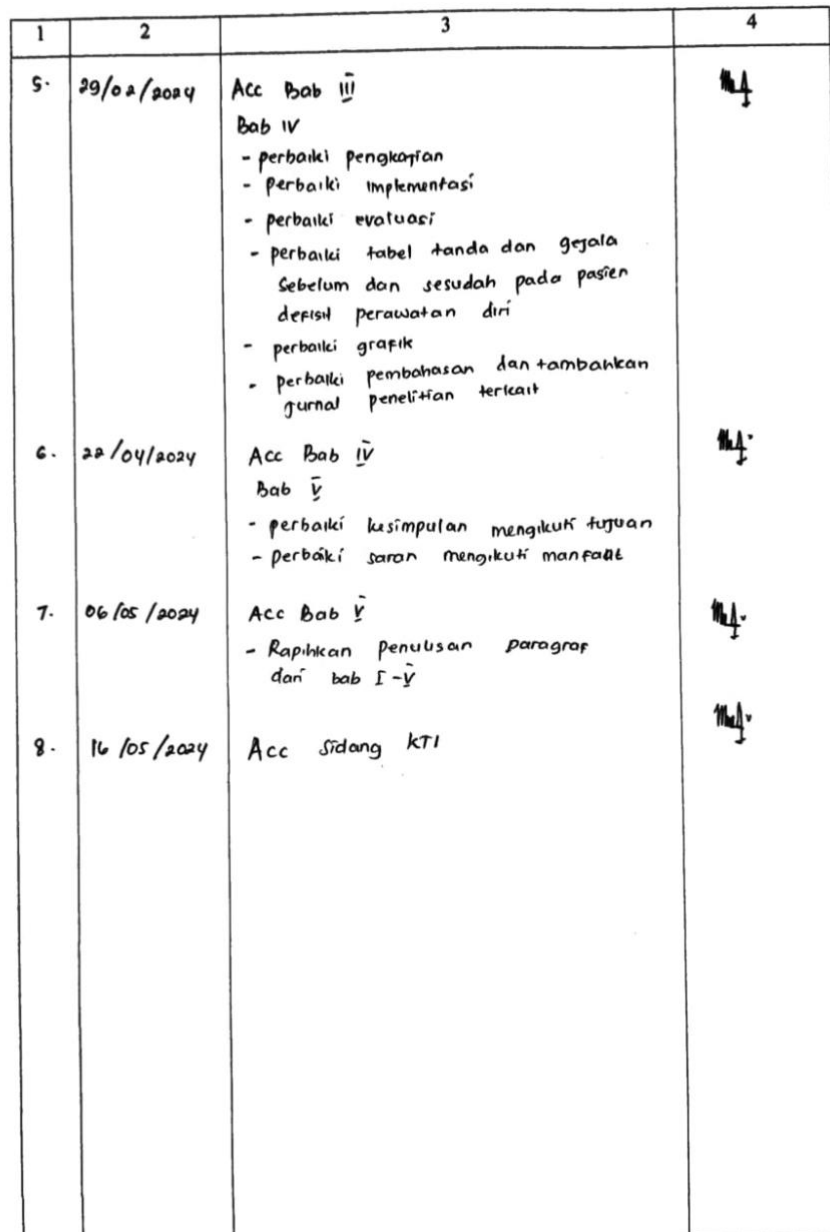 1 2 3 4
5. 29/02/2024 Acc Bab III
Bab IV
- perbaiki pengkajian
- perbaiki implementasi
- perbaiki evaluasi
- perbaiki tabel tanda dan gejala
sebelum dan sesudah pada pasien
defisit perawatan diri
- perbaiki grafik
- perbaiki pembahasan dan tambahkan
jurnal penelitian terkait
6. 22/04/2024 Acc Bab IV
Bab V
- perbaiki kesimpulan mengikuti tujuan
- perbaiki saran mengikuti manfaat
7. 06/05/2024 Acc Bab V
- Rapihkan penulisan paragraf
dari bab I-V
8. 16/05/2024 Acc Sidang KTI